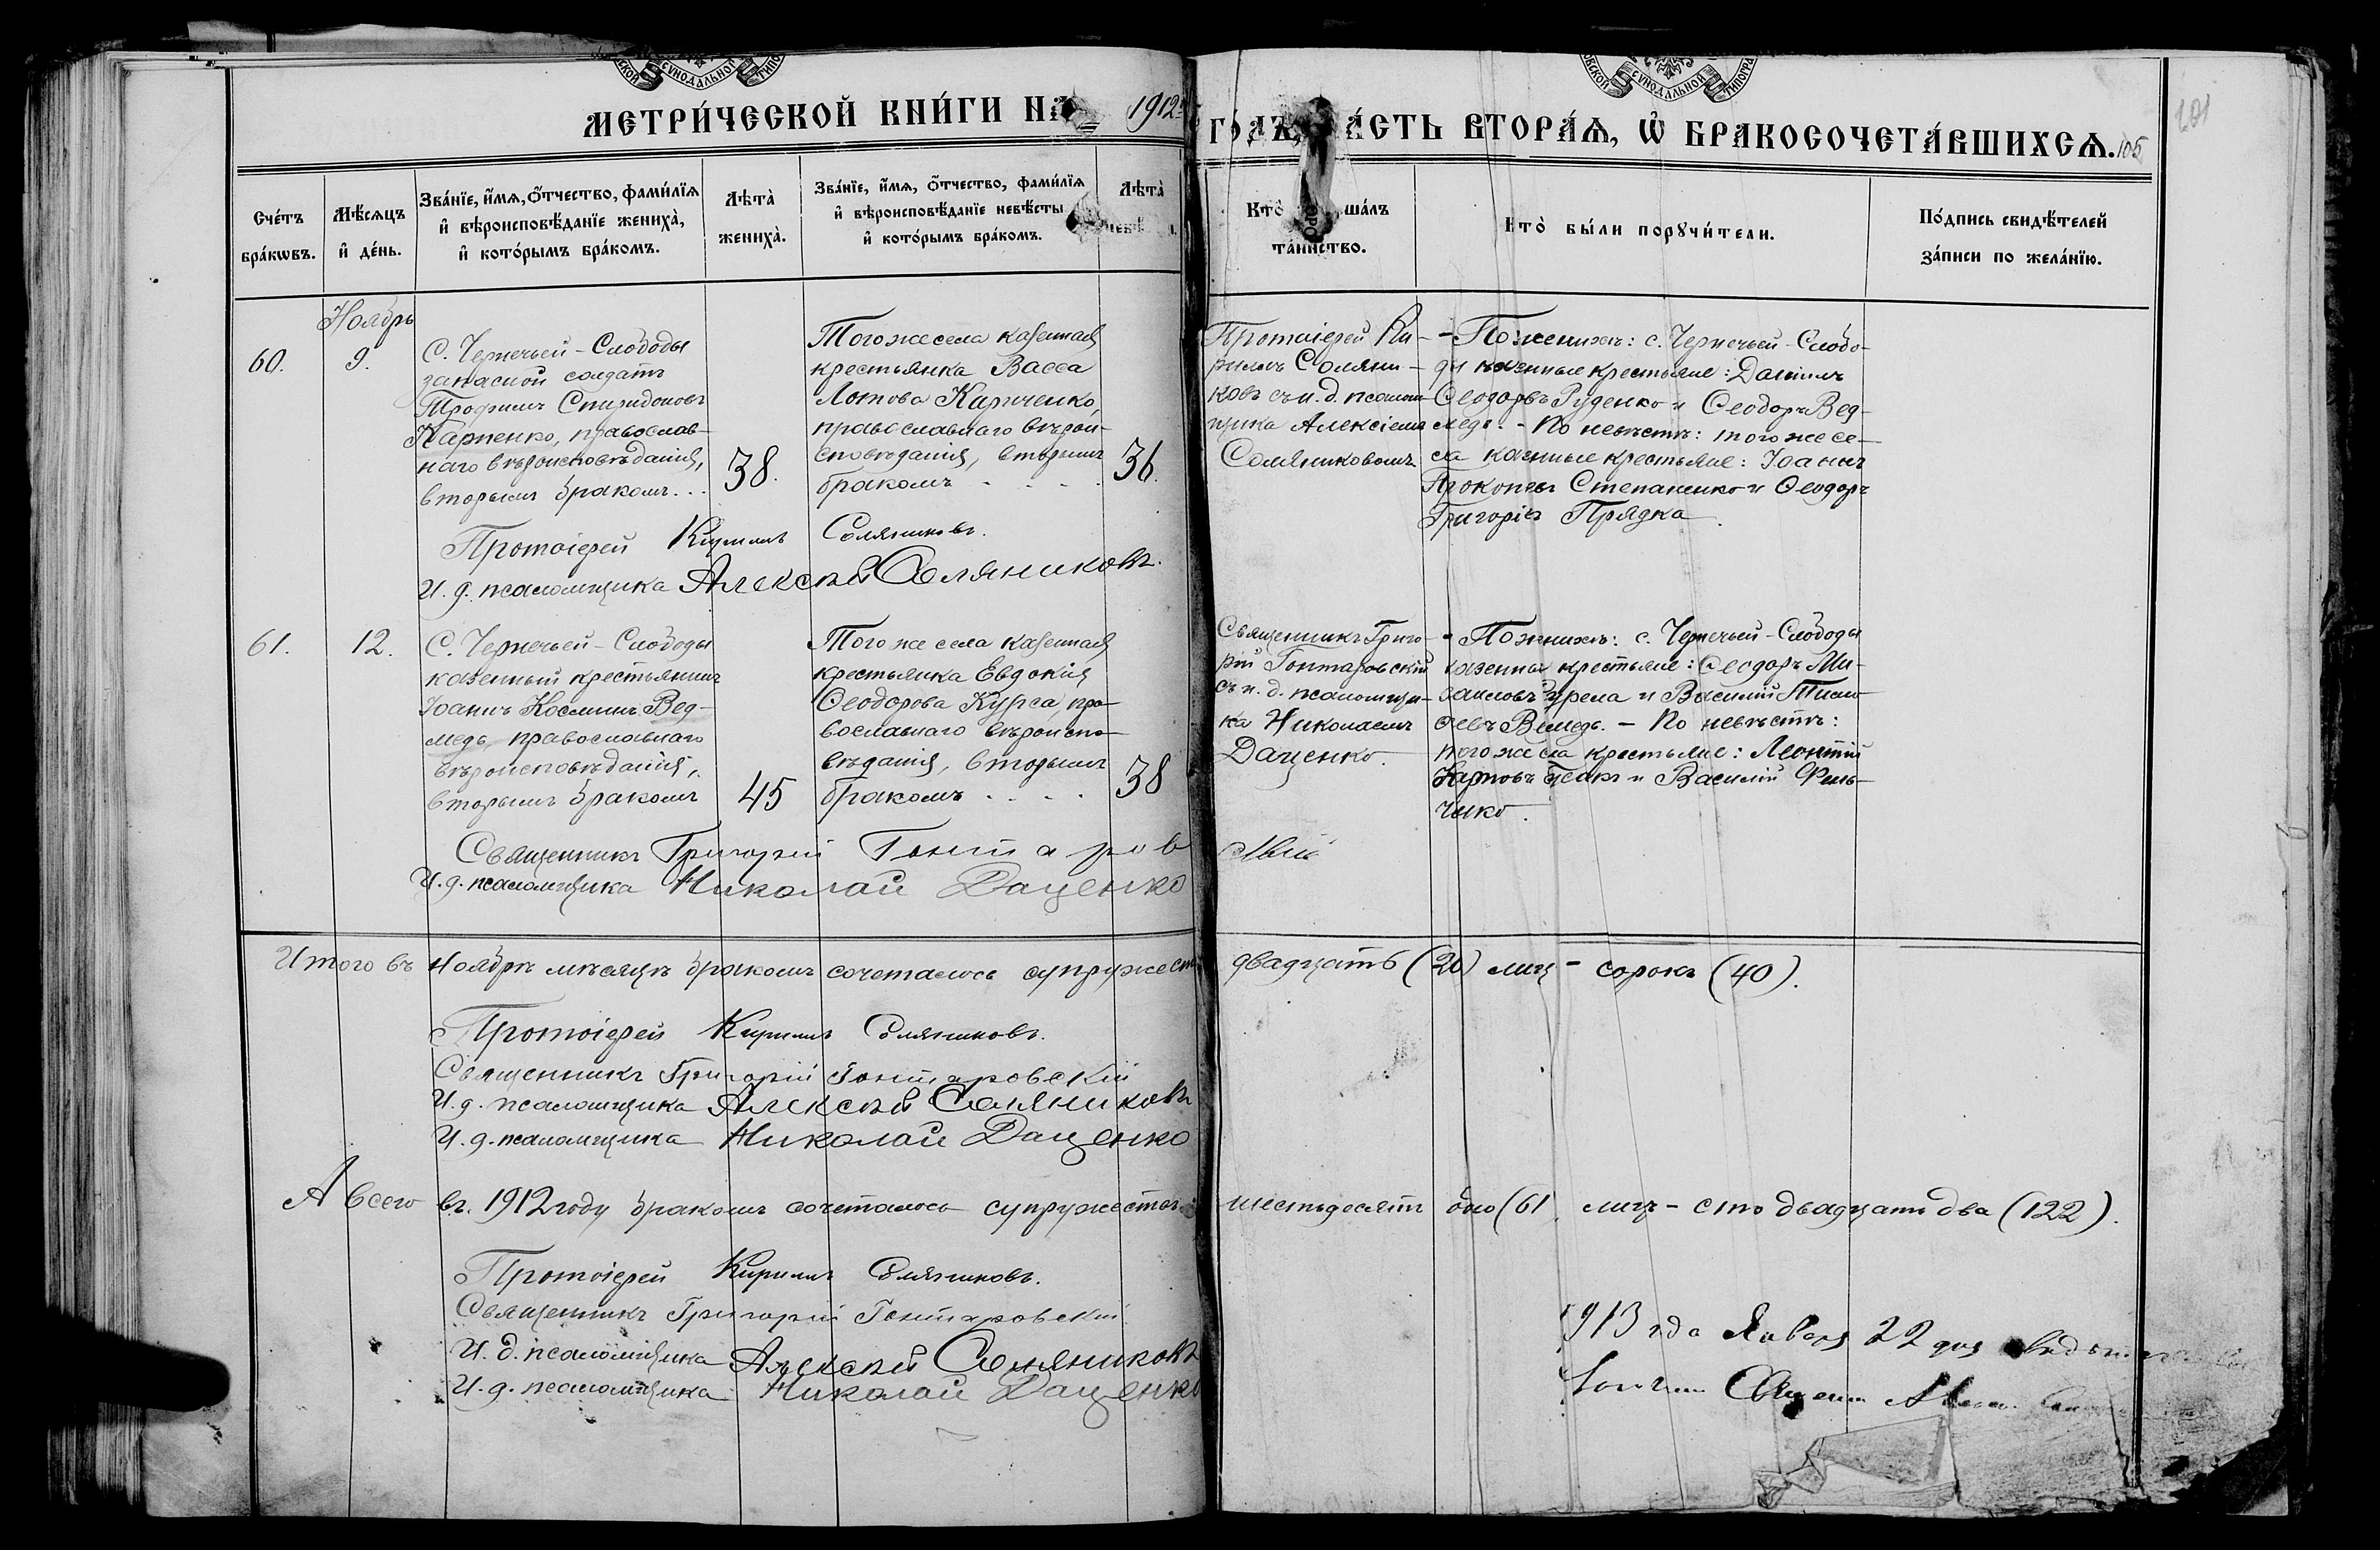 МЕТРИ́ЧЕСКОЙ КНИ́ГИ НА 1912
ГО́ДЪ, ЧА́СТЬ ВТОРА́Я, Ѡ҆ БРАКОСОЧЕТА́ВШИХСѦ. 105
101
Сче́тъ бра́кѡвъ.
Мѣ́сяцъ и҆ де́нь.
Зва́нїе, и҆́мя, ѻ҆́тчество, фами́лїя
и҆ вѣроисповѣ́данїе жениха̀,
и҆ кото́рымъ бра́комъ.
Лѣта̀ жениха̀.
Зва́нїе, и҆́мя, ѻ҆́тчество, фами́лїя
и҆ вѣроисповѣ́данїе невѣ́сты
и҆ кото́рымъ бра́комъ.
Лѣта̀
Кто̀ шáлъ
та́инство.
Кто̀ бы́ли порꙋчи́тели.
По́дпись свидѣ́телей
за́писи по жела́нїю.
Ноябрь
60.
9.
С. Чернечьей-Слободы
запасной солдатъ
Трофимъ Спиридоновъ
Карпенко, православ-
наго вѣроисповѣданія,
вторымъ бракомъ...
38.
Того же села казенная
крестьянка Васса
Лотова Кириченко,
православнаго вѣрои-
сповѣданія, вторымъ
бракомъ . . . .
36.
Протоіерей Ки-
риллъ Соляни-
ковъ съ и. д. псалом-
щика Алексіемъ
Соляниковымъ
- По женихѣ: с. Чернечьей-Слобо-
ды казенные крестьяне: Даніилъ
Ѳеодоровъ Руденко и Ѳеодоръ Вед-
медь. - По невѣстѣ: того же се-
ла казенные крестьяне: Іоаннъ
Прокопіевъ Степаненко и Ѳеодоръ
Григоріевъ Прядка.
Протоіерей Кириллъ Соляниковъ.
И. д. псаломщика Алексѣй Соляниковъ.
61.
12.
С. Чернечьей-Слободы
казенный крестьянинъ
Іоаннъ Косминъ Вед-
медь, православнаго
вѣроисповѣданія,
вторымъ бракомъ
45
Того же села казенная
крестьянка Евдокія
Ѳеодорова Курса, пра-
вославнаго вѣроиспо-
вѣданія, вторымъ
бракомъ . . . .
38
Священникъ Григо-
рій Гонтаровскій
съ и. д. псаломщи-
ка Николаемъ
Даценко.
- По женихѣ: с. Чернечьей-Слободы
казенные крестьяне: Ѳеодоръ Ми-
хаиловъ и Василій Тимо-
ѳеевъ Ведмедь. - По невѣстѣ:
того же села крестьяне: Леонтій
Карповъ и Василій Филь-
ченко.
Священникъ Григорій Гонтаровскій
И. д. псаломщика Николай Даценко
Итого въ Ноябрѣ мѣсяцѣ бракомъ сочеталось супружествъ двадцать (20) лицъ - сорокъ (40).
Протоіерей Кириллъ Соляниковъ.
Священникъ Григорій Гонтаровскій
И. д. псаломщика Алексѣй Соляниковъ
И. д. псаломщика Николай Даценко
А всего въ 1912 году бракомъ сочеталось супружествъ шестьдесятъ одно (61) лицъ - сто двадцать два (122).
Протоіерей Кириллъ Соляниковъ.
Священникъ Григорій Гонтаровскій.
И. д. псаломщика Алексѣй Соляниковъ
И. д. псаломщика Николай Даценко
1913 года Января 22 дня